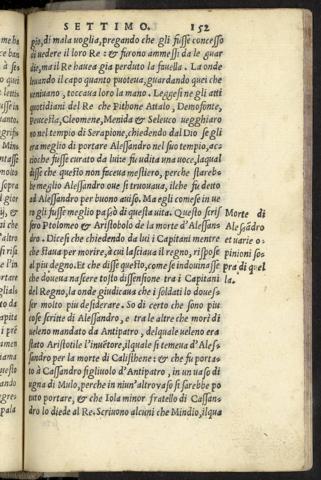 SETTIMO. 152
gio, di mala uoglia, pregando che gli fusse concesso
di uedere il loro Re: & furono ammessi da le guar
die, ma il Re haueua gia perduto la fauella. La onde
leuando il capo quanto puoteua, guardando quei che
ueniuano, toccaua loro la mano. Leggesi ne gli atti
quotidiani del Re che Pithone Attalo, Demofonte,
Peucesta, Cleomene, Menida & Seleuco uegghiaro
no nel tempio di Serapione, chiedendo dal Dio se gli
era meglio di portare Alessandro nel suo tempio, ac
cioche fusse curato da lui: e fu udita una uoce, laqual
disse che questo non faceua mestiero, perche starebbe
be meglio Alessandro oue si trouaua, ilche fu detto
ad Alessandro per buono auiso. Ma egli comese in ue
ro gli fusse meglio passò di questa uita. Questo scris
sero Ptolomeo & Aristobolo de la morte d'Alessan-
dro. Dicesi che chiedendo da lui i Capitani mentre
che staua per morire, à cui lasciaua il regno, rispose
al piu degno. Et che disse questo, come se indouinasse
che doueua nascere tosto dissensione tra i Capitani
del Regno, la onde giudicaua che i soldati lo doues-
ser molto piu desiderare. So di certo che sono piu
cose scritte di Alessandro, e tra le altre che morì di
ueleno mandato da Antipatro, delquale ueleno era
stato Aristotile l'inuẽtore, ilquale si temeua d'Ales-
sandro per la morte di Calisthene: & che fu porta-
to à Cassandro figliuolo d'Antipatro, in un uaso di
ugna di Mulo, perche in niun'altro uaso si sarebbe po
tuto portare, & che Iola minor fratello di Cassan-
dro lo diede al Re. Scriuono alcuni che Mindio, ilqua
Morte di
Alesãdro
et uarie o-
pinioni so-
pra di quel
la.